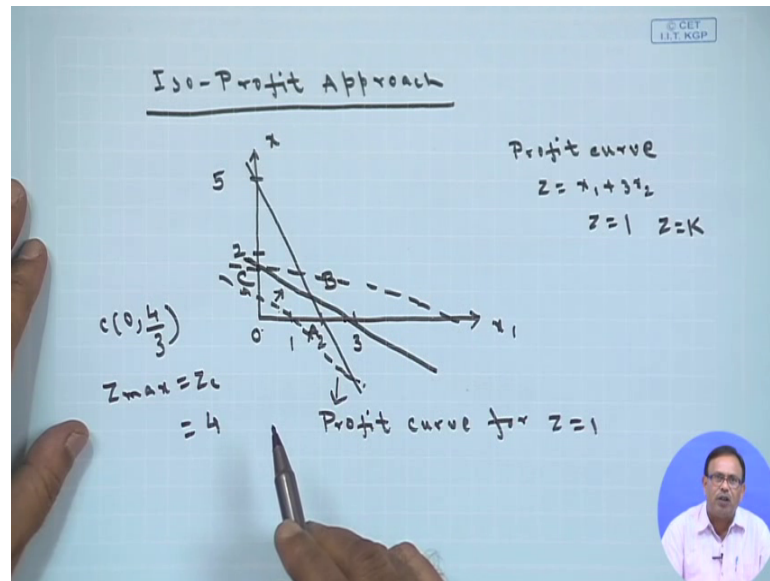 © CET
I.I.T. KGP
Iso-Profit Approach
x
Profit curve
5
Z = x₁ + 3x₂
Z = 1 Z = K
2
C
B
C(0, 4/3)
0 A x₁
1 2 3
Zmax = Zc
= 4
Profit curve for Z = 1